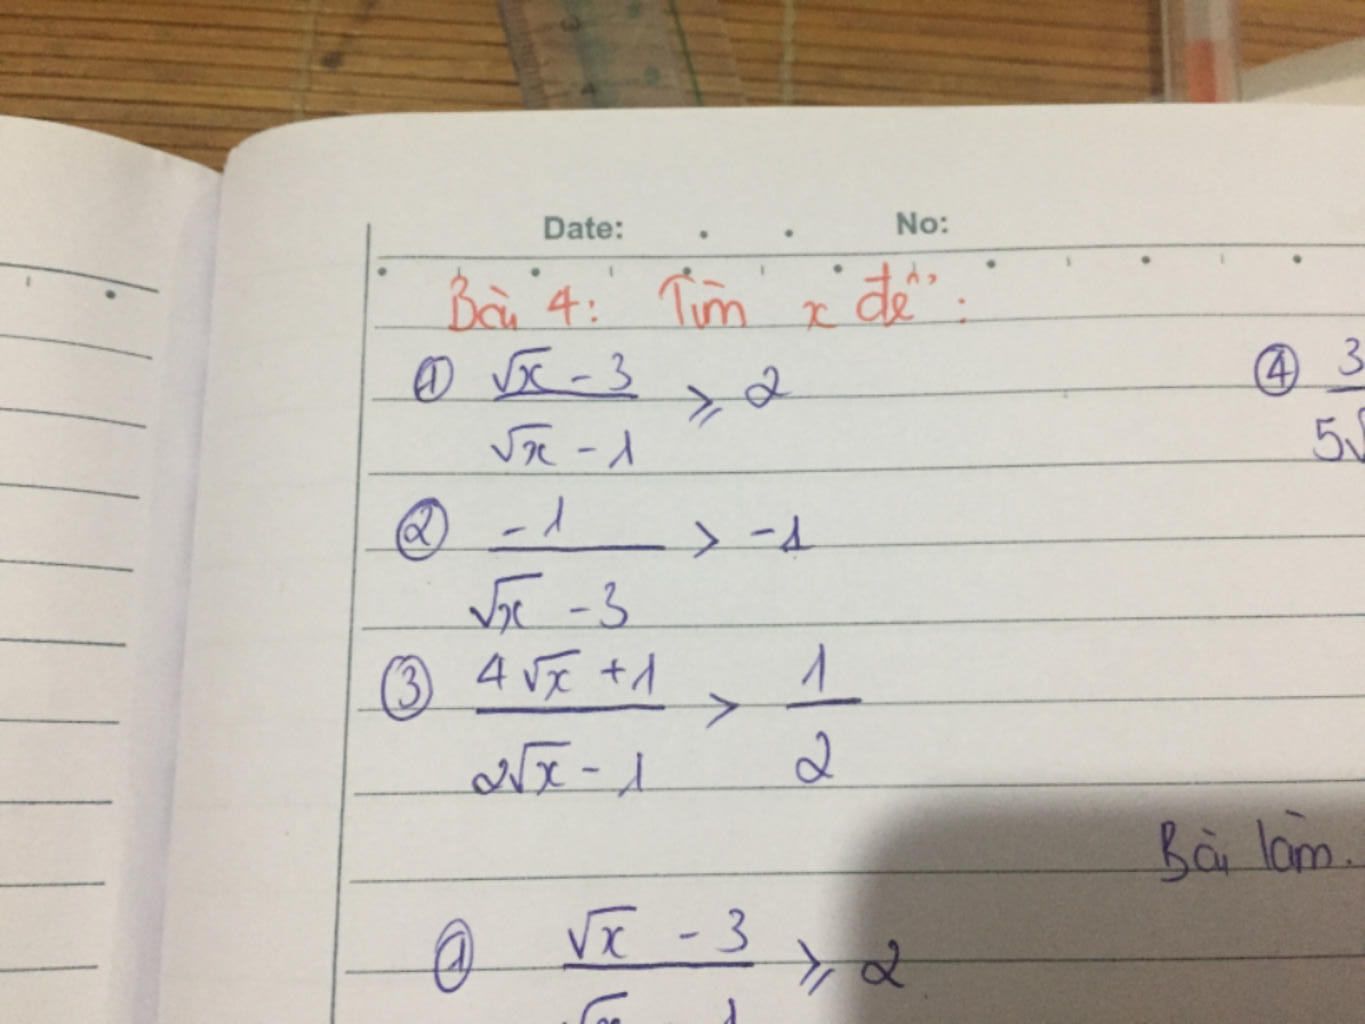 Date: . . No:
Bài 4: Tìm x để:
① (√x - 3)/(√x - 1) ⩾ 2
④ 3/5√
② -1/(√x - 3) > -1
③ (4√x + 1)/(2√x - 1) > 1/2
Bài làm.
① (√x - 3)/(√x - 1) ⩾ 2